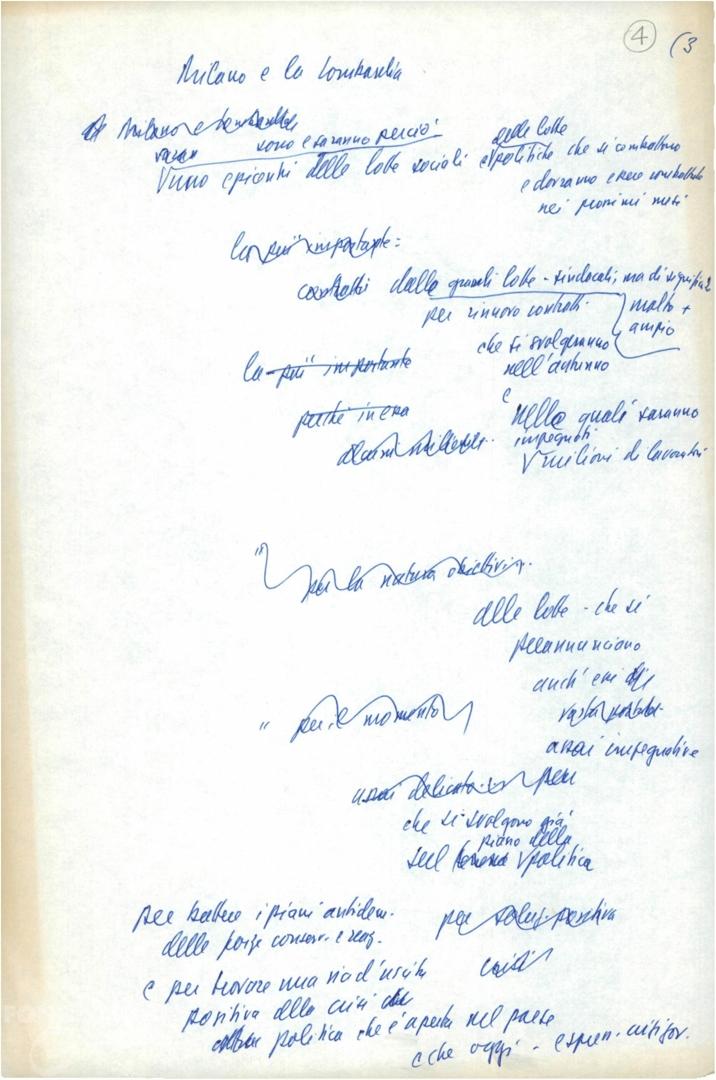 4 (3
Milano e la Lombardia
Milano e Lombardia
sono e saranno perciò
uno epicentri delle lotte sociali e politiche che si combattono
delle lotte
e dovranno essere combattute
nei prossimi mesi
la più importante:
dalle grandi lotte - sindacali, ma di signific.
per rinnovo contratti
molto +
ampio
che si svolgeranno
nell'autunno
la più importante
e
perché in essa
nelle quali saranno
impegnati
milioni di lavoratori
" per la natura obiettiva
alle lotte - che si
preannunciano
anch'essi di
vasta portata
assai impegnative
" per il momento
assai delicato per
che si svolgono già
piano della
sul terreno politica
per battere i piani antidem.
delle forze conserv. e reaz.
per soluz. positiva
crisi
e per trovare una via d'uscita
positiva alla crisi
politica che è aperta nel paese
e che oggi -